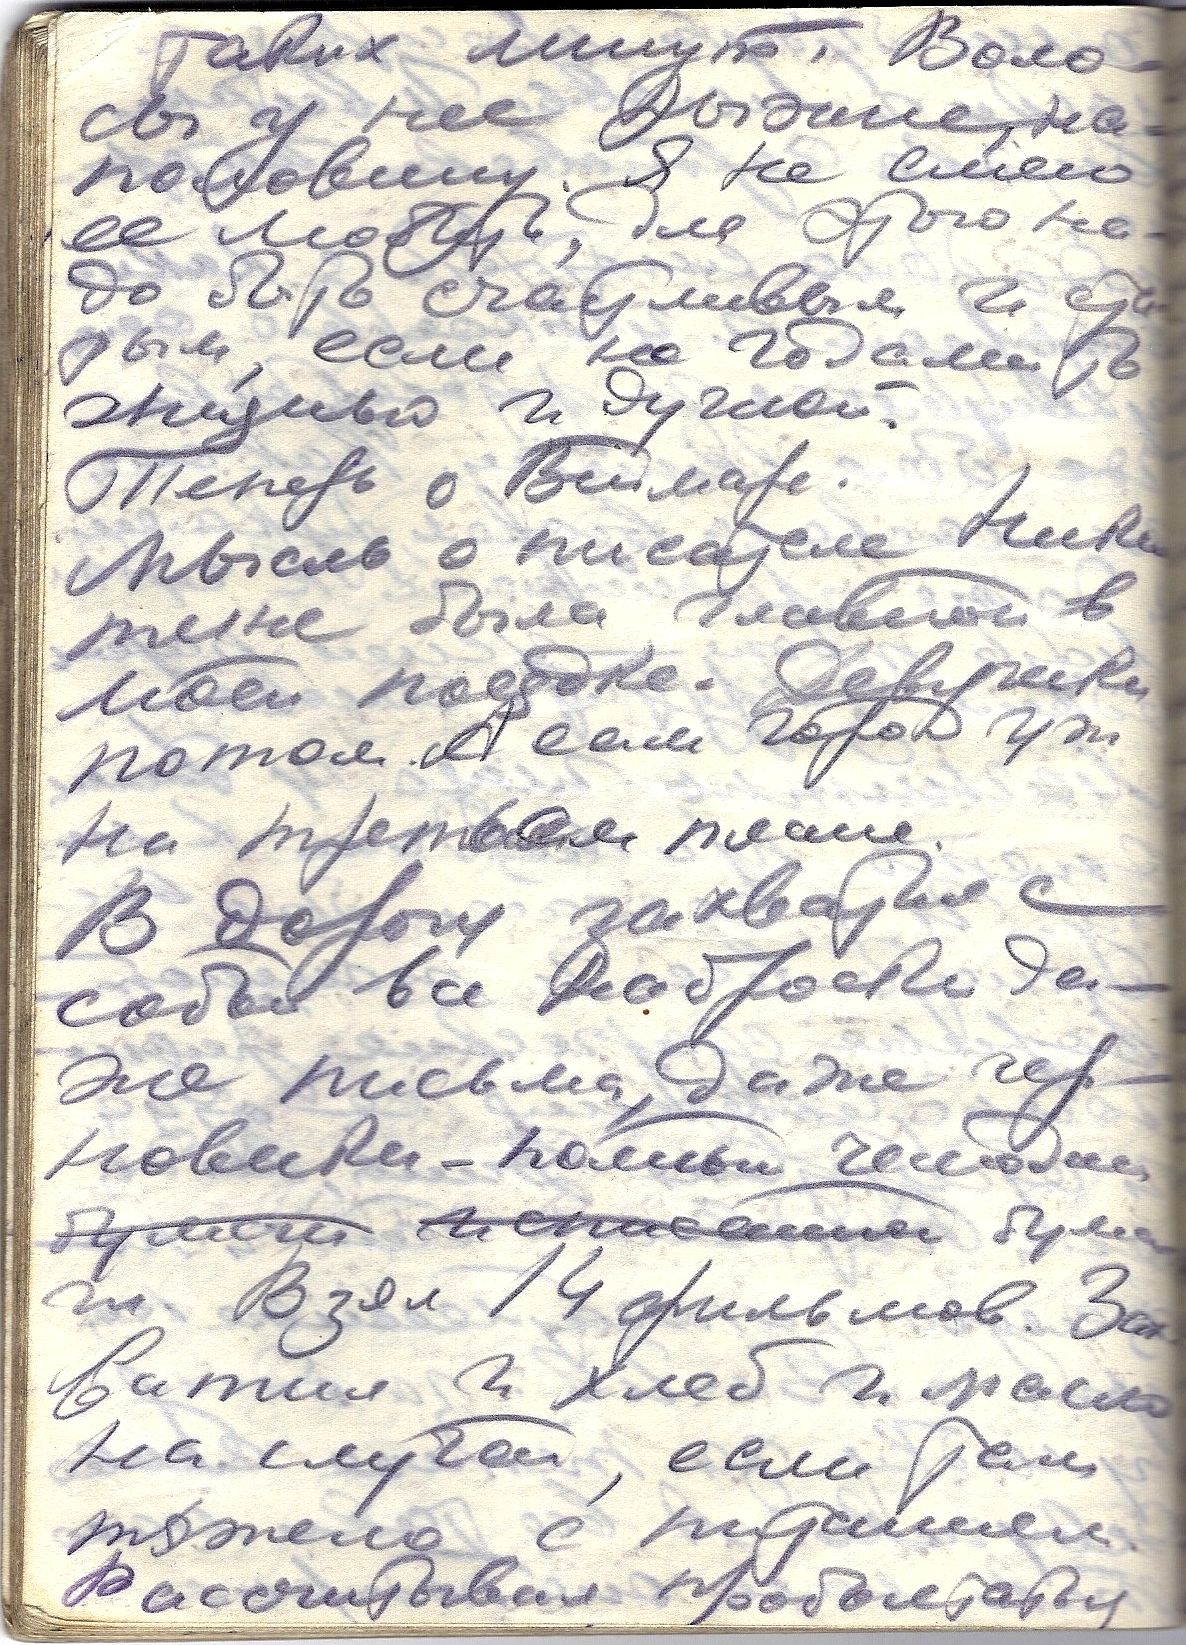 таких минут. Воло-
сы у нее рыжие, на-
половину. Я не смею
ее любить, для этого на-
до быть счастливым и ста-
рым, если не годами, то
жизнью и думой.
Теперь о Веймаре.
Мысль о писателе Ники-
тине была главной в
моей поездке. Девушки
потом. А сам город уж
на третьем плане.
В дорогу захватил с
собой все наброски да-
же письма, даже чер-
новики - полный чемодан
бумаги исписанной бума-
ги Взял 14 фильмов. Зах-
ватил и хлеб и масло
на случай, если там
тяжело с питанием.
Рассчитывал проболтаться